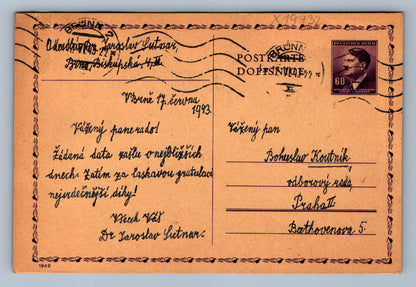 X19932
BRÜNN 2
BRÜNN
Dr. Jaroslav Sutnar,
Brno, Biskupská 4,
POSTKARTE
DOPISNICE
DEUTSCHES REICH
60
V Brně 17. června
1943.
Vážený pane rado!
Žádaná data zašlu v nejbližších
dnech. Zatím za laskavou gratulaci
nejsrdečnější díky!
Všech Váš
Dr. Jaroslav Sutnar.
Vážený pan
Bohuslav Koutník
odborový rada,
Praha II
Beethovenova 5.
1942